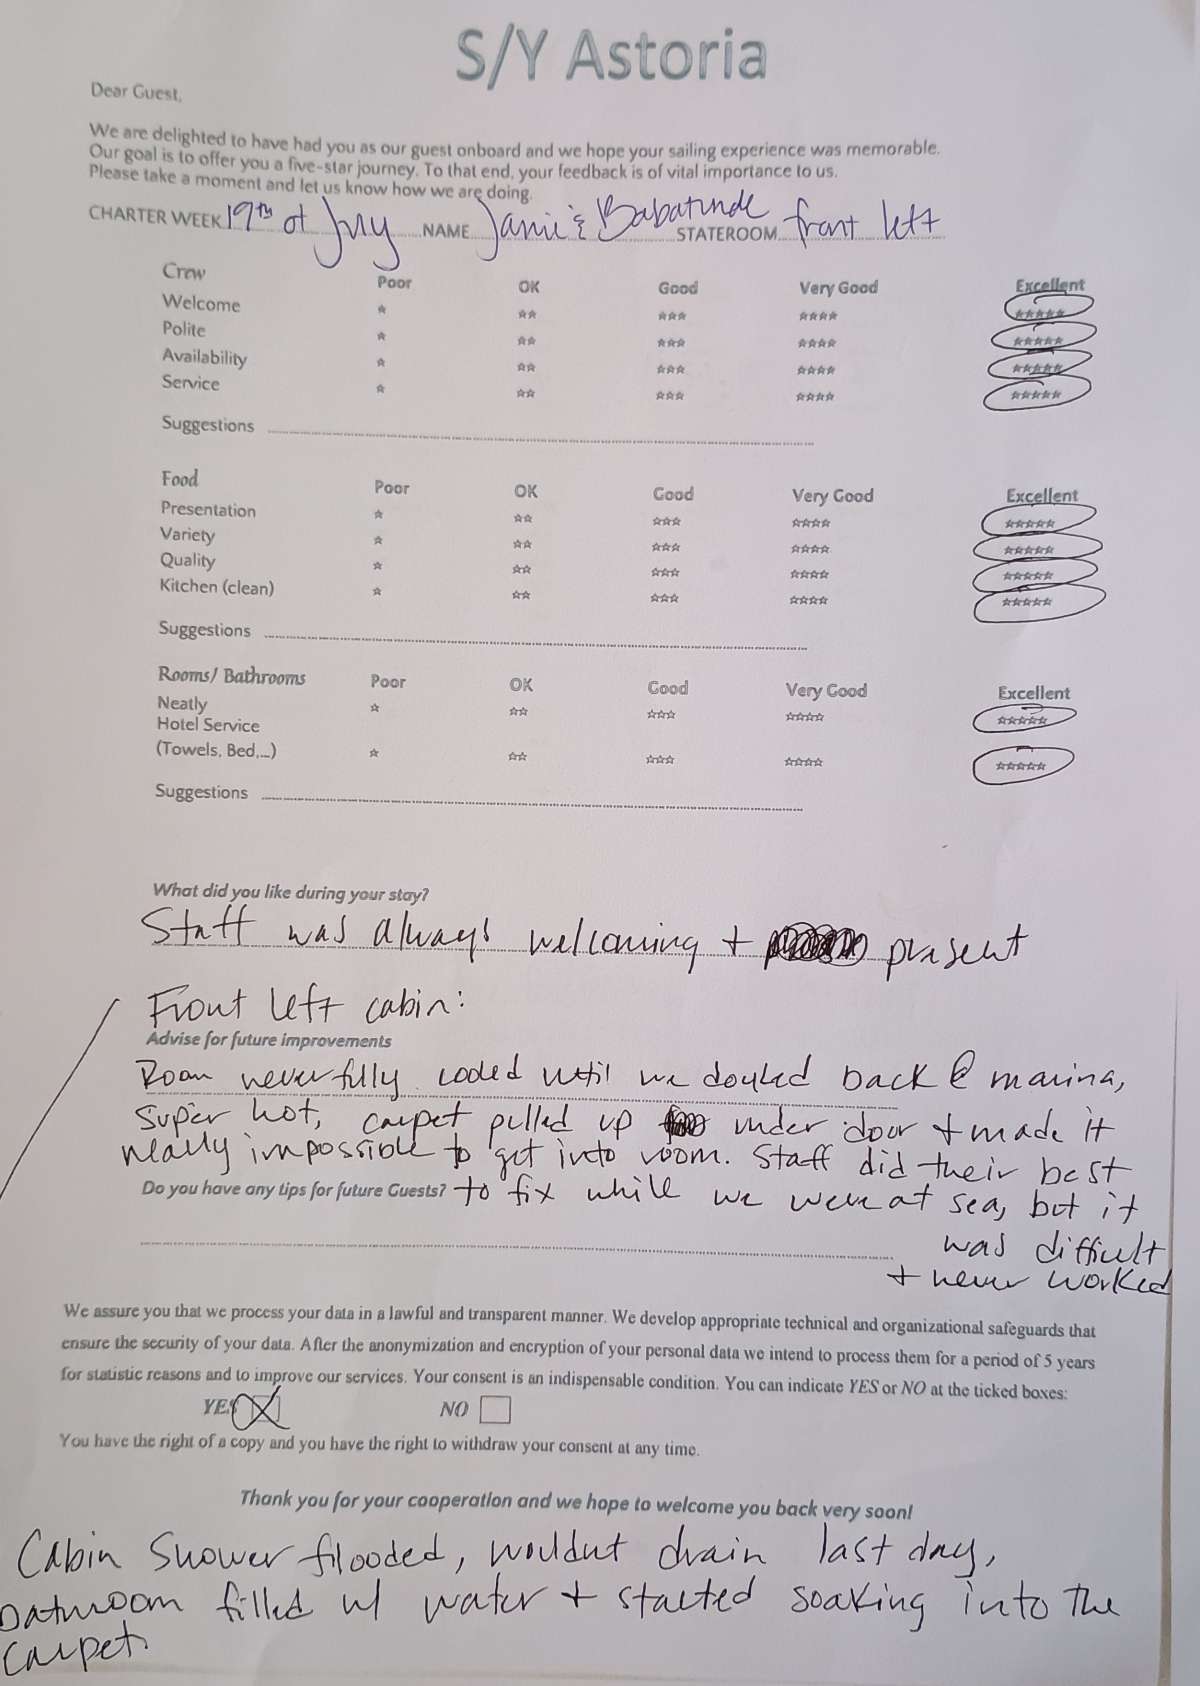 S/Y Astoria
Dear Guest,
We are delighted to have had you as our guest onboard and we hope your sailing experience was memorable.
Our goal is to offer you a five-star journey. To that end, your feedback is of vital importance to us.
Please take a moment and let us know how we are doing.
CHARTER WEEK 19th of July NAME Jamie & Babatunde STATEROOM front left
Crew Poor OK Good Very Good Excellent
Welcome ☆ ☆☆ ☆☆☆ ☆☆☆☆ ☆☆☆☆☆
Polite ☆ ☆☆ ☆☆☆ ☆☆☆☆ ☆☆☆☆☆
Availability ☆ ☆☆ ☆☆☆ ☆☆☆☆ ☆☆☆☆☆
Service ☆ ☆☆ ☆☆☆ ☆☆☆☆ ☆☆☆☆☆
Suggestions
Food Poor OK Good Very Good Excellent
Presentation ☆ ☆☆ ☆☆☆ ☆☆☆☆ ☆☆☆☆☆
Variety ☆ ☆☆ ☆☆☆ ☆☆☆☆ ☆☆☆☆☆
Quality ☆ ☆☆ ☆☆☆ ☆☆☆☆ ☆☆☆☆☆
Kitchen (clean) ☆ ☆☆ ☆☆☆ ☆☆☆☆ ☆☆☆☆☆
Suggestions
Rooms/ Bathrooms Poor OK Good Very Good Excellent
Neatly ☆ ☆☆ ☆☆☆ ☆☆☆☆ ☆☆☆☆☆
Hotel Service
(Towels, Bed,...) ☆ ☆☆ ☆☆☆ ☆☆☆☆ ☆☆☆☆☆
Suggestions
What did you like during your stay?
Staff was always welcoming + present
Front left cabin:
Advise for future improvements
Room never fully cooled until we docked back @ marina,
super hot, carpet pulled up under door + made it
nearly impossible to get into room. Staff did their best
Do you have any tips for future Guests? to fix while we were at sea, but it
was difficult
+ never worked
We assure you that we process your data in a lawful and transparent manner. We develop appropriate technical and organizational safeguards that
ensure the security of your data. After the anonymization and encryption of your personal data we intend to process them for a period of 5 years
for statistic reasons and to improve our services. Your consent is an indispensable condition. You can indicate YES or NO at the ticked boxes:
YES NO
You have the right of a copy and you have the right to withdraw your consent at any time.
Thank you for your cooperation and we hope to welcome you back very soon!
Cabin shower flooded, wouldnt drain last day,
bathroom filled w/ water + started soaking into the
carpet.